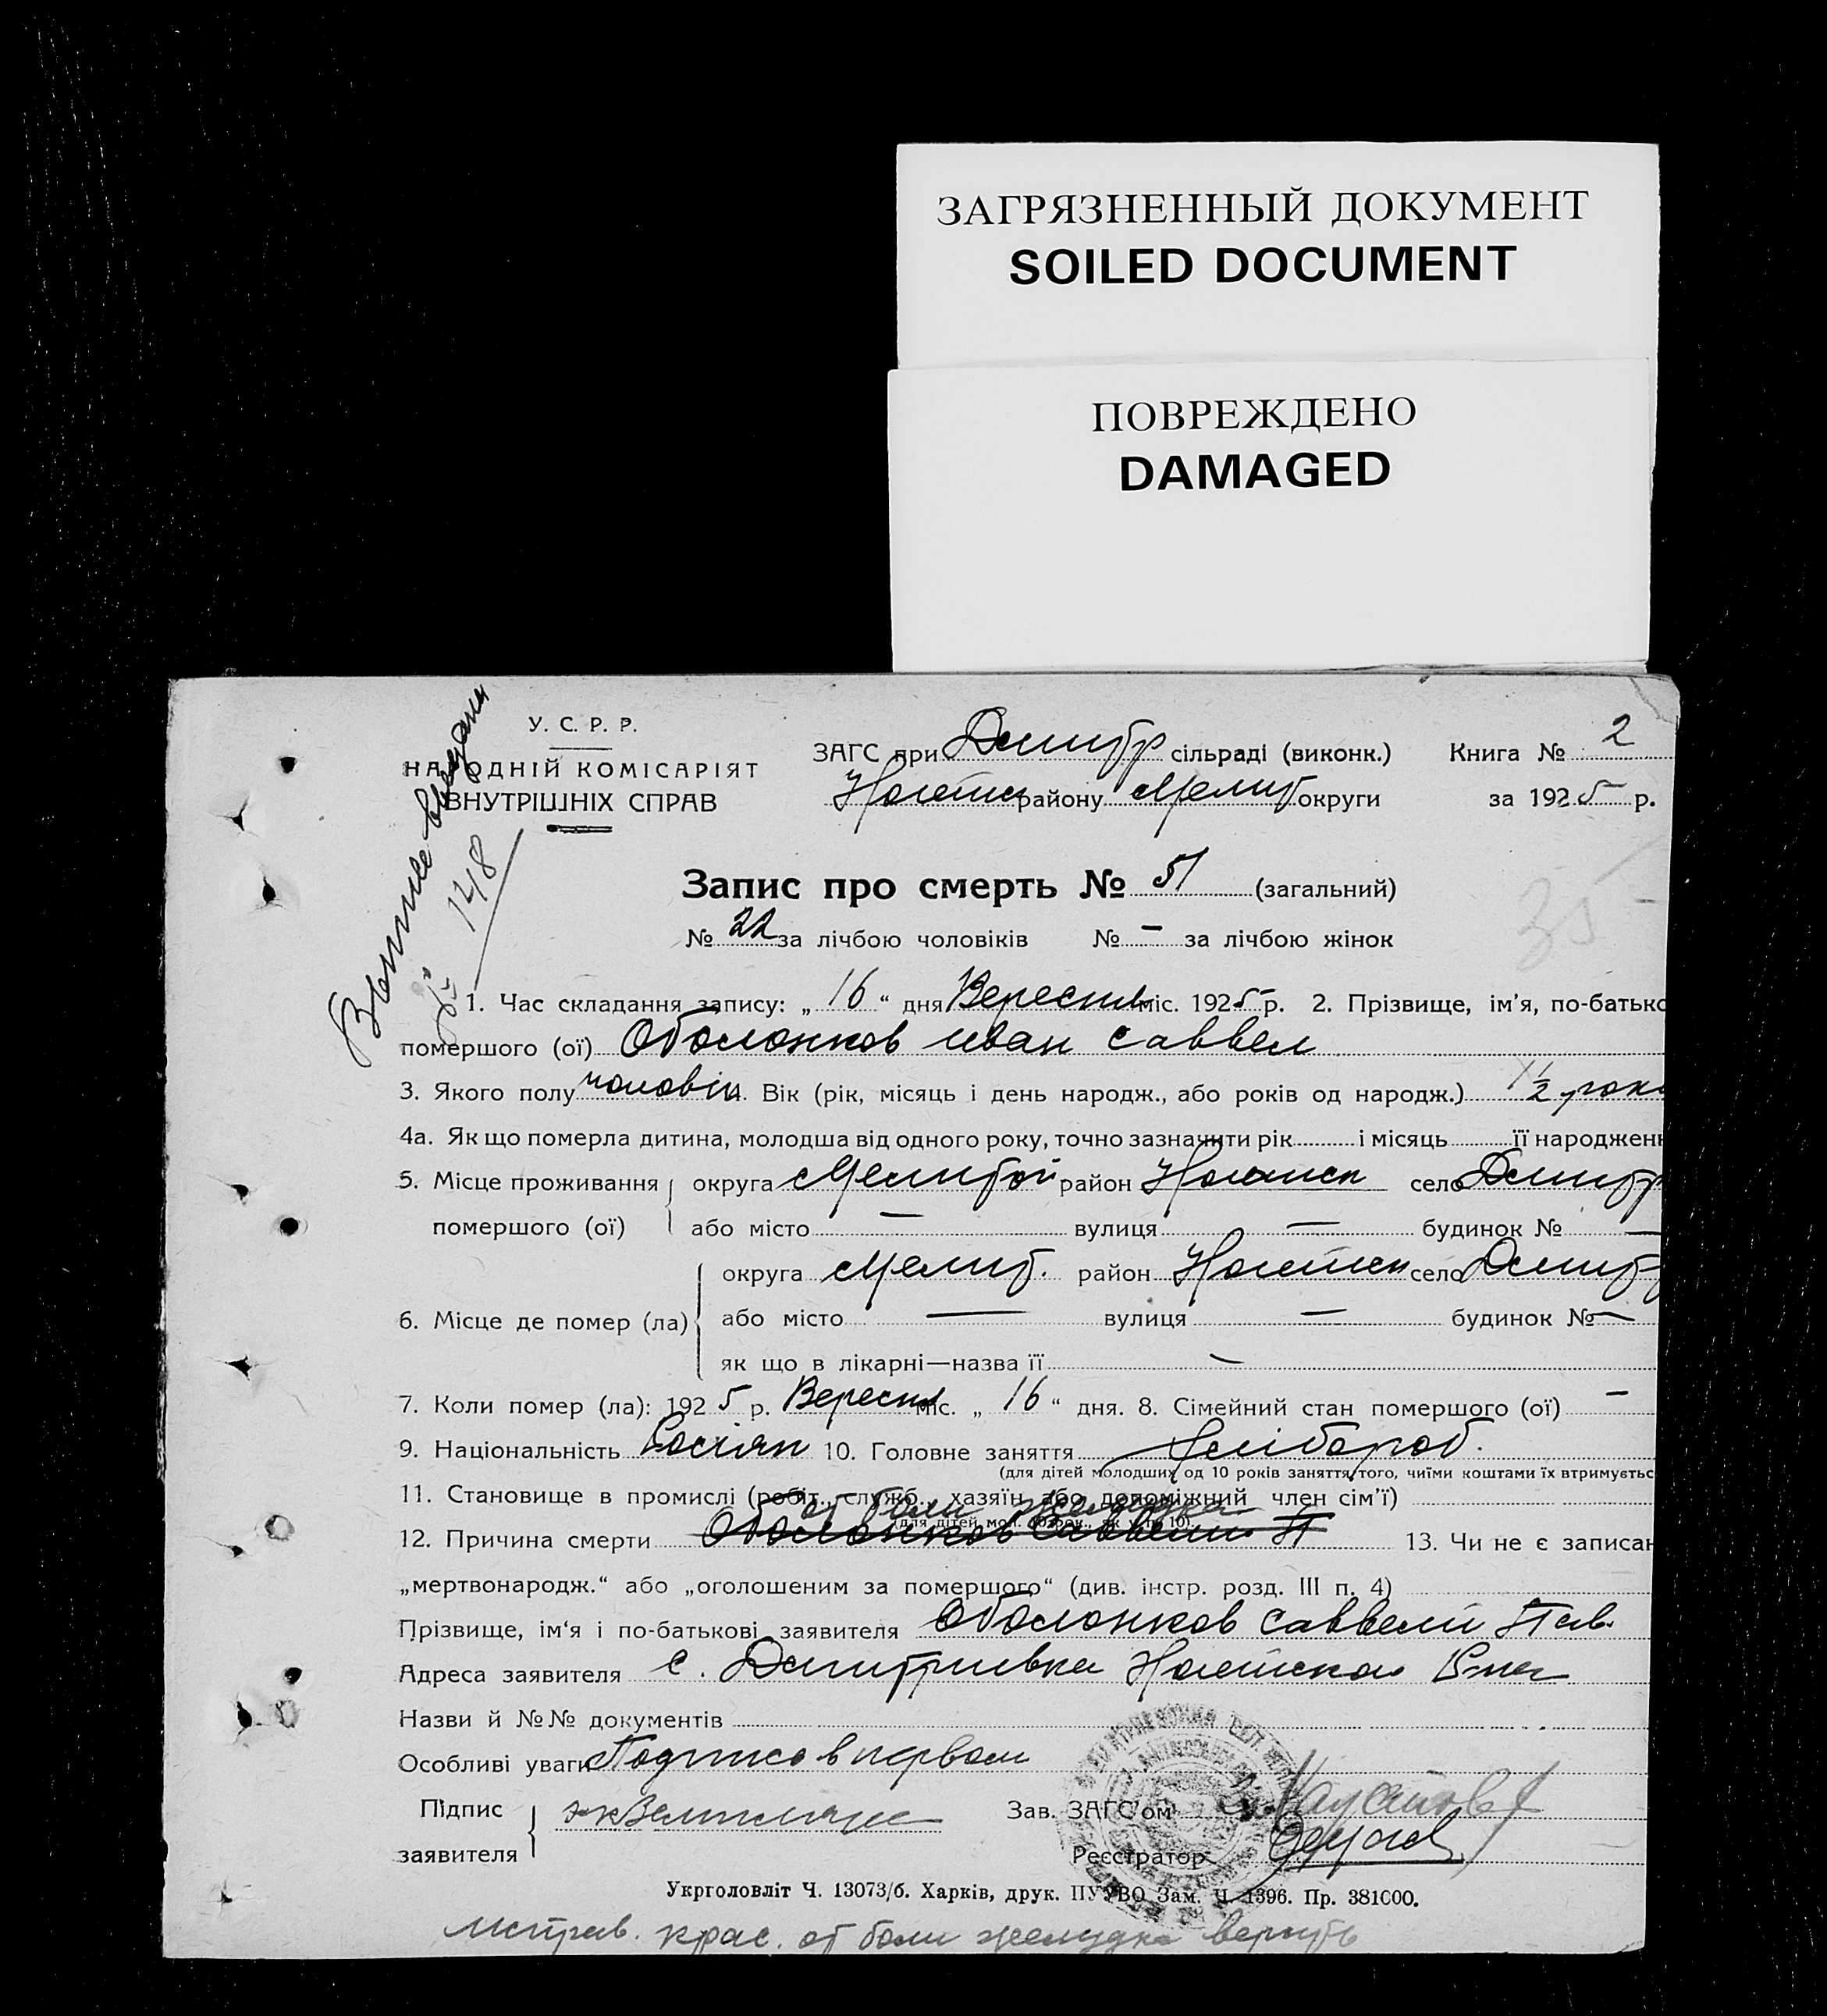 ЗАГРЯЗНЕННЫЙ ДОКУМЕНТ
SOILED DOCUMENT
ПОВРЕЖДЕНО
DAMAGED
У. С. Р. Р.
НАРОДНІЙ КОМІСАРІЯТ
ВНУТРІШНІХ СПРАВ
148
ЗАГС при Дмитр сільраді (виконк.) Книга № 2
району Мелит округи за 1925 р.
Запис про смерть № 51 (загальний)
№ 22 за лічбою чоловіків № — за лічбою жінок
35
1. Час складання запису: „ 16 “ дня Вересня міс. 1925 р. 2. Прізвище, ім’я, по-батько
помершого (ої) Оболонков Иван Саввел
3. Якого полу чоловік 4. Вік (рік, місяць і день народж., або років од народж.) 1½ рок
4а. Як що померла дитина, молодша від одного року, точно зазначити рік і місяць її народжен
5. Місце проживання округа Мелитой район село Дмитр
помершого (ої) або місто — вулиця — будинок № —
округа Мелит. район село Дмитр
6. Місце де помер (ла) або місто — вулиця — будинок № —
як що в лікарні—назва її —
7. Коли помер (ла): 1925 р. Вересня міс. „ 16 “ дня. 8. Сімейний стан помершого (ої) —
9. Національність Росіян 10. Головне заняття Хлібороб.
(для дітей молодших од 10 років заняття того, чиїми коштами їх втримуєтьс
11. Становище в промислі (робіт., служб., хазяїн або допоміжний член сім’ї)
от боли желудка
(для дітей мол. возрач., як у п. 10)
12. Причина смерти Оболонков Саввели П 13. Чи не є записан
„мертвонародж.“ або „оголошеним за помершого“ (див. інстр. розд. III п. 4)
Прізвище, ім‘я і по-батькові заявителя Оболонков Саввели Пав.
Адреса заявителя с. Дмитриевка
Назви й №№ документів
Особливі уваги Подписи в первом
Підпис
заявителя
Зав. ЗАГС’ом
Реєстратор
Укрголовліт Ч. 13073/б. Харків, друк. ПУУВО Зам. Ч. 1396. Пр. 381000.
исправ. крас. от боли желудка верить